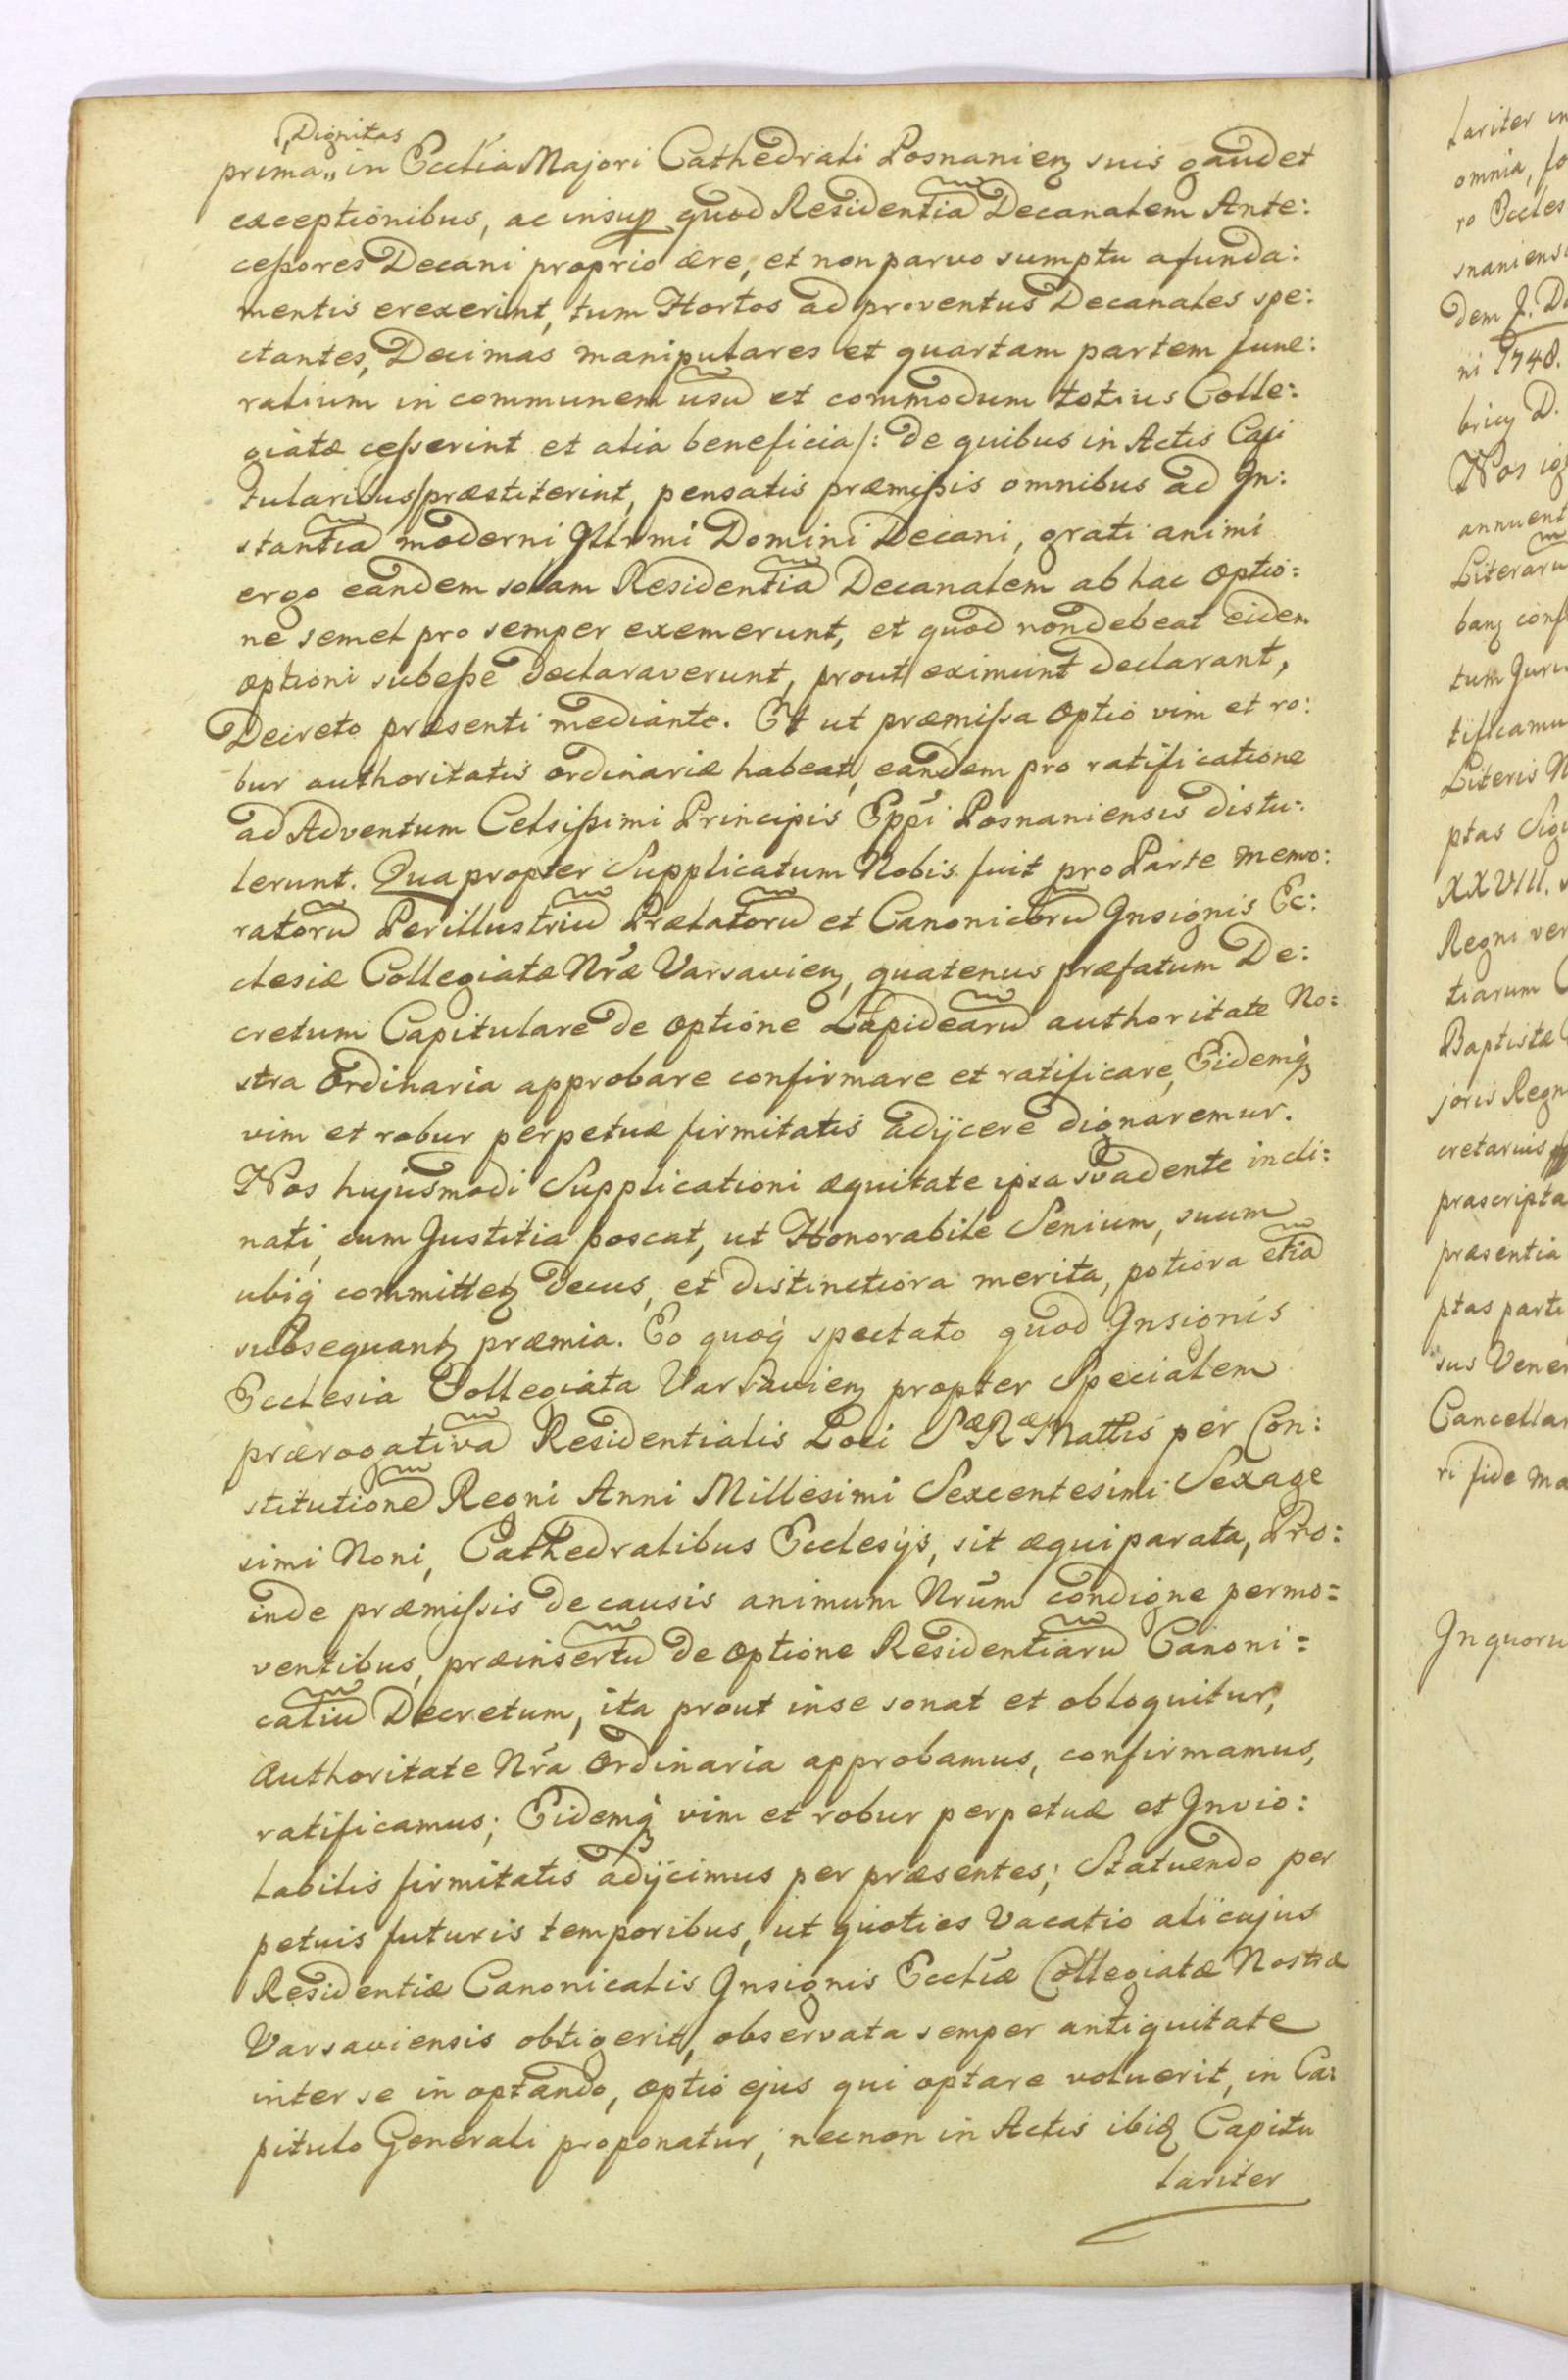 Dignitas
prima,, in Ecclīa Majori Cathedrali Posnanien̄ suis gaudet
exceptionibus, ac insup quod Residentiā Decanalem Ante:
ceßores Decani proprio ære, et non parvo sumptu a funda:
mentis erexerint, tum Hortos ad proventus Decanales spe:
ctantes, Decimas manipulares et quartam partem fune:
ralium in communem usū et commodum totius Colle:
giatæ ceſserint et alia beneficia /: de quibus in Actis Capi
tularibus/ præstiterint, pensatis præmißis omnibus ad In:
stantiā moderni Illr̄mi Domini Decani, grati animi
ergo eandem solam Residentiā Decanalem ab hac optio:
ne semel pro semper exemerunt, et quod non debeat eidem
optioni subeße declaraverunt, prout eximunt declarant,
Decreto præsenti mediante. Et ut præmiſsa optio vim et ro:
bur authoritatis ordinariæ habeat, eandem pro ratificatione
ad Adventum Celsißimi Principis Epp̄i Posnaniensis distu:
lerunt. Quapropter Supplicatum Nobis fuit pro Parte memo:
ratorū Perillustriū Prælatorū et Canonicorū Insignis Ec:
clesiæ Collegiatæ Nr̄æ Varsavien̄, quatenus præfatum De:
cretum Capitulare de optione Lapidearū authoritate No:
stra Ordinaria approbare confirmare et ratificare, Eidemq̄
vim et robur perpetuæ firmitatis adijcere dignaremur.
Nos hujusmodi Supplicationi æquitate ipsa svadente incli:
nati, cum Justitia poscat, ut Honorabile Senium, suum
ubiq̄ committet̄ decus, et distinctiora merita, potiora etiā
subsequant̄ præmia. Eo quoq̄ spectato quod Insignis
Ecclesia Collegiata Varsavien̄ propter Specialem
prærogativā Residentialis Loci Sæ Ræ Mattis per Con:
stitutionē Regni Anni Millesimi Sexcentesimi Sexage
simi Noni, Cathedralibus Ecclesijs, sit æquiparata, Pro:
inde præmiſsis de causis animum Nr̄um condigne permo=
ventibus, præinsertū de optione Residentiarū Canoni=
caliū Decretum, ita prout in se sonat et obloquitur,
Authoritate Nr̄a Ordinaria approbamus, confirmamus,
ratificamus; Eidemq̄ vim et robur perpetuæ et Invio:
labilis firmitatis adijcimus per præsentes; Statuendo per
petuis futuris temporibus, ut quoties Vacatio alicujus
Residentiæ Canonicalis Insignis Ecclīæ Collegiatæ Nostræ
Varsaviensis obtigerit, observata semper antiquitate
inter se in optando, optio ejus qui optare voluerit, in Ca:
pitulo Generali proponatur, necnon in Actis ibiq̄ Capitu
lariter
lariter in
omnia, fo
ro Eccles
snaniensi
dem J. D
ni 1748.
bricy D.
Nos ig
annuent
Literaru
banz conf
tum Juri
tificamu
Literis N
ptas Sig
XXVIII.
Regni ver
tiarum
Baptistæ
joris Regn
cretarius
præscripta
præsentia
ptas parti
sus Vener
Cancellar
ri fide ma
In quoru